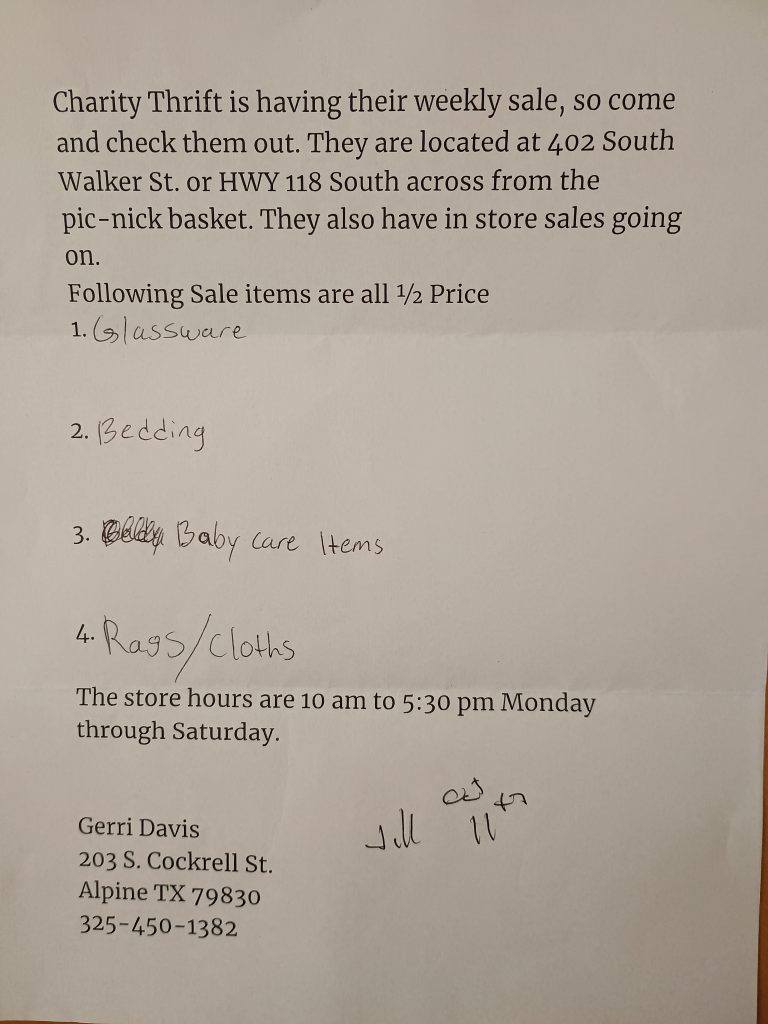 Charity Thrift is having their weekly sale, so come
and check them out. They are located at 402 South
Walker St. or HWY 118 South across from the
pic-nick basket. They also have in store sales going
on.
Following Sale items are all ½ Price
1. Glassware
2. Bedding
3. Baby care Items
4. Rags/Cloths
The store hours are 10 am to 5:30 pm Monday
through Saturday.
Gerri Davis
203 S. Cockrell St.
Alpine TX 79830
325-450-1382